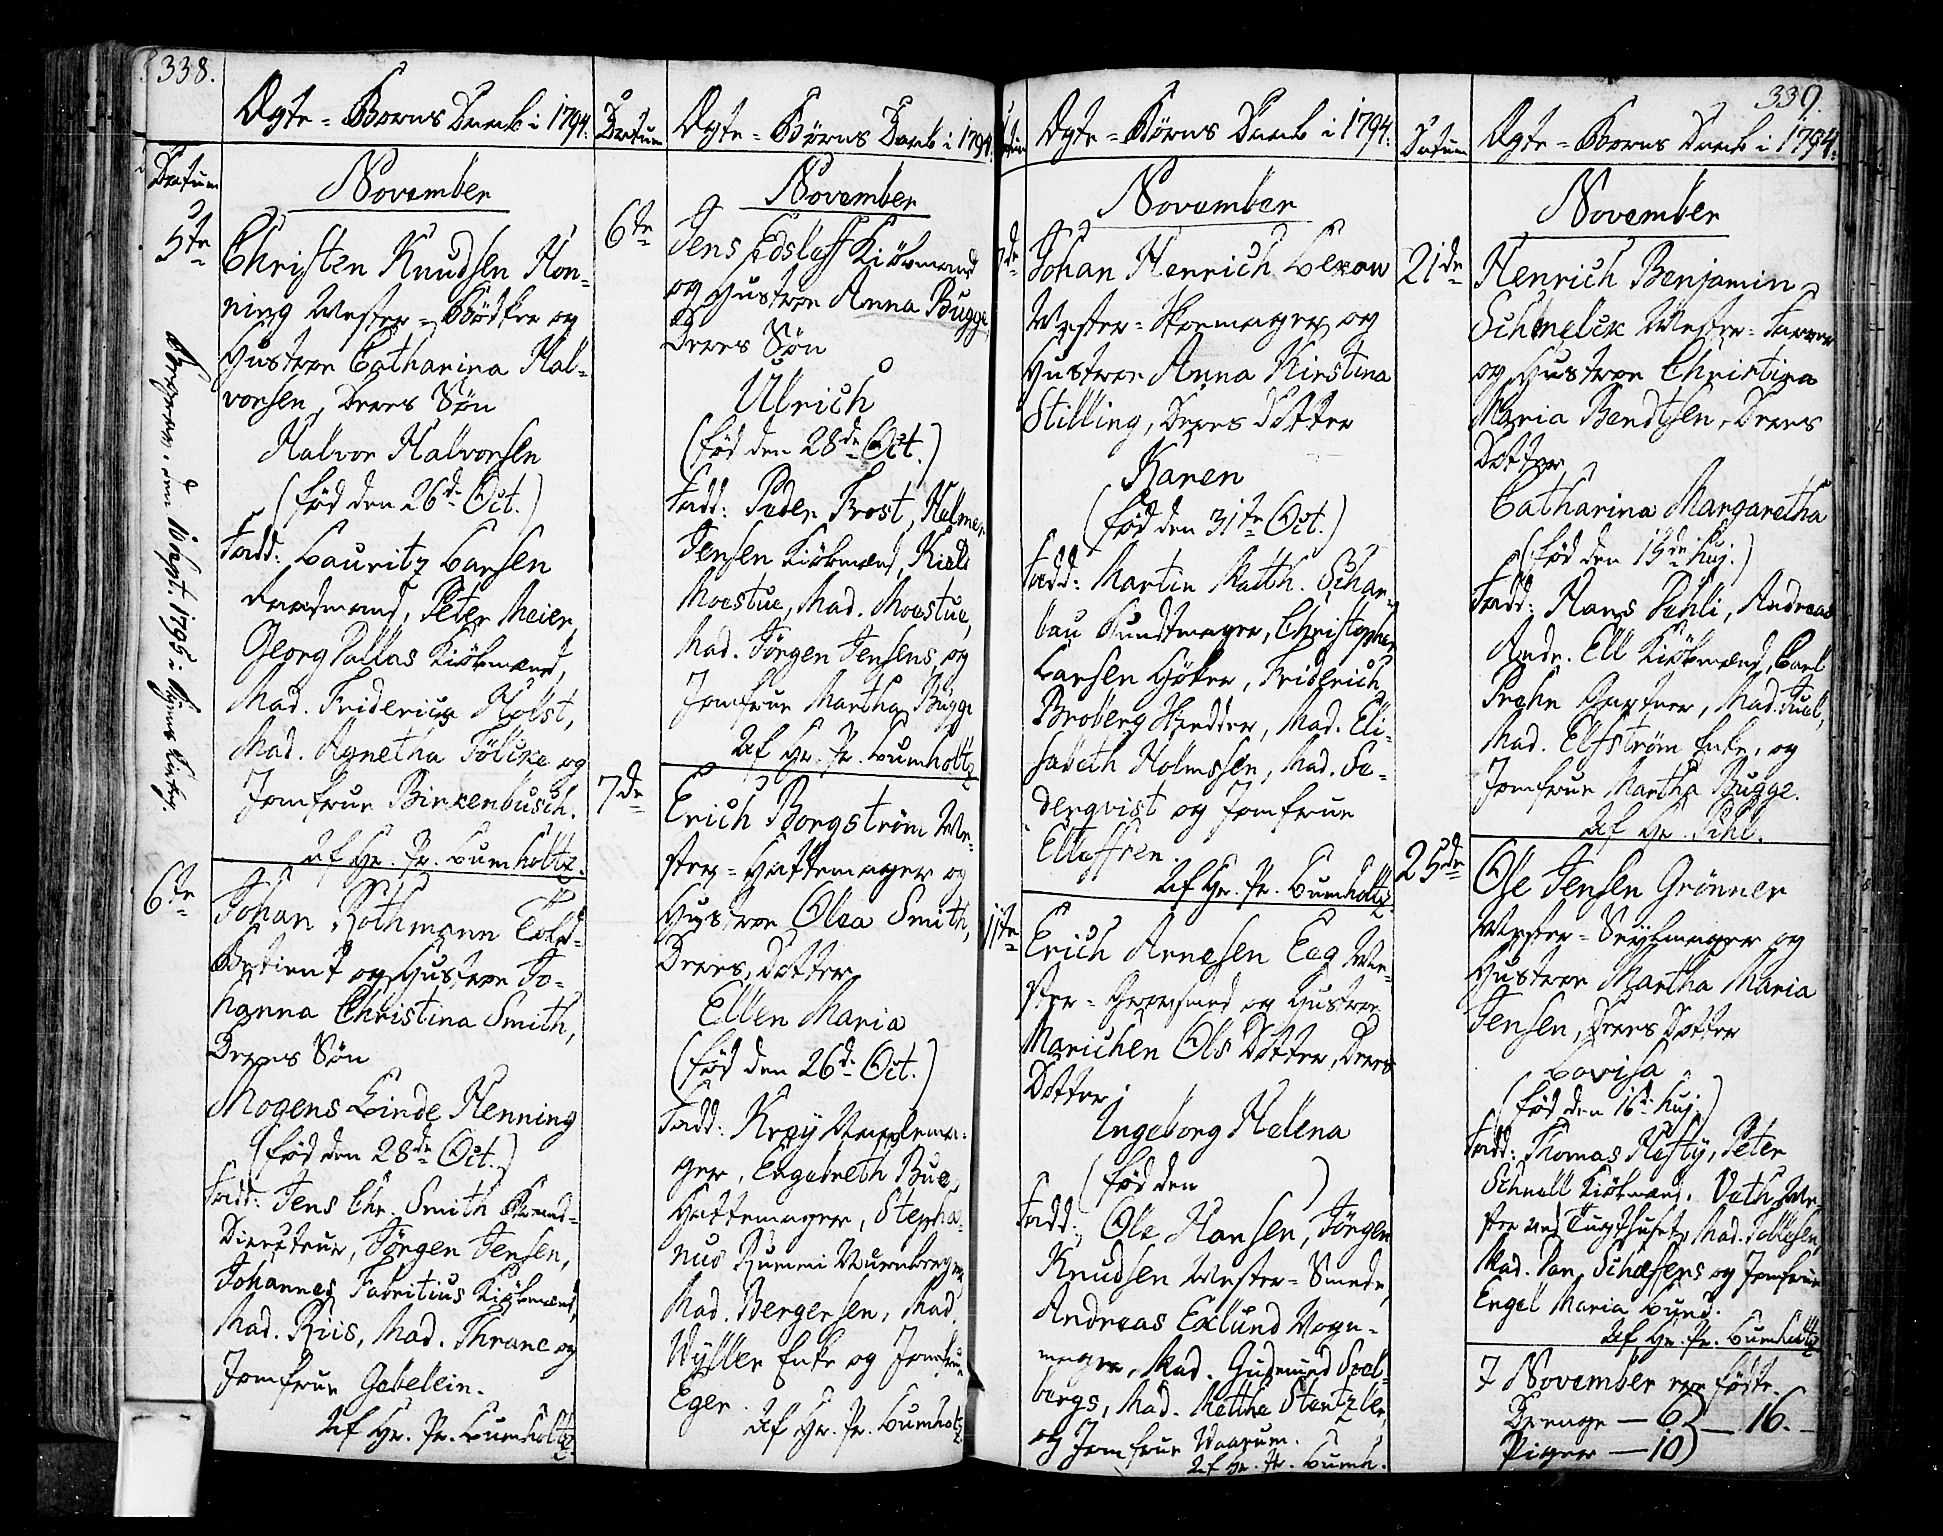 338.
Ægte-Børns Daab i 1794.
Datum
November
5te
Christen Knudsen Hon-
ning Mester-Bødker og
Hustroe Catharina Hal-
vorsen, Deres Søn
Halvor Halvorsen
(fød den 26de Oct.)
Fadd: Lauritz Larsen
Peter Meier,
Georg Pallas Kiøbmænd,
Mad. Friderica Holst,
Mad. Agnetha Fölcke og
Jomfrue Birkenbusch.
Af Hr. Pr. Lumholtz.
den 10 Sept. 1795 i
6te
Johan Rothmann Told-
Betient og Hustroe Jo-
hanna Christina Smith,
Deres Søn
Mogens Linde Henning
(fød den 28de Oct.)
Fadd: Jens Chr. Smith Brand-
Directeur, Jörgen Jensen,
Johannes Fabritius Kiøbmænd,
Mad. Riis, Mad. Thrane og
Jomfrue Gabelein.
Af Hr. Pr. Lumholtz.
Datum
Ægte-Børns Daab i 1794.
November
6te
Jens Edsleff Kiøbmand
og Hustroe Anna Bugge
Deres Søn
Ulrich
(fød den 28de Oct.)
Fadd: Peder Brost, Helmer
Jensen Kiøbmænd, Kield
Moestue, Mad. Moestue,
Mad. Jörgen Jensens, og
Jomfrue Martha Bugge
Af Hr. Pr. Lumholtz
7de
Erich Borgström Me-
ster-Hattemager og
Hustroe Olea Smith,
Deres Dotter
Ellen Maria
(fød den 26de Oct.)
Fadd: Krey
ger, Engebreth Bue,
Hattemager, Stepha-
nus Rummi Muurmester,
Mad. Bergersen, Mad.
Wyller Enke og Jomfrue
Eger.
Af Hr. Pr. Lumholtz
Ægte-Børns Daab i 1794.
November
Johan Henrich Lexow
Mester-Skoemager og
Hustroe Anna Kirstina
Stilling, Deres Dotter
Karen
(fød den 31te Oct.)
Fadd: Martin Matth. Schar-
bau Bundtmager, Christopher
Larsen Høker, Friderich
Broberg Skredder, Mad. Eli-
sabeth Holmssen, Mad. Se-
derqvist og Jomfrue
Ellefsen.
Af Hr. Pr. Lumholtz.
11te
Erich Arnesen Eeg Me-
ster-Grovsmed og Hustroe
Marichen Ols Dotter, Deres
Dotter
Ingeborg Helena
(fød den )
Fadd: Ole Hansen, Jörgen
Knudsen Mester-Smede,
Andreas Exlund Vogn-
mager, Mad. Gudmund Soel-
bergs, Mad. Mette Stentzler
og Jomfrue Waarum.
Af Hr. Pr. Lumh.
339.
Datum
Ægte-Børns Daab i 1794.
November
21de
Henrich Benjamin
Schmelck Mester-Farver
og Hustroe Christina
Maria Bendtsen, Deres
Dotter
Catharina Margaretha
(fød den 15de huj.)
Fadd: Hans Pehli, Andreas
Andr. Ell Kiøbmænd, Carl
Prehn Gartner, Mad. Juel,
Mad. Elfström Enke, og
Jomfrue Martha Bugge.
Af Hr. Pihl.
25de
Ole Jensen Grönner
Mester-Seylmager og
Hustroe Martha Maria
Jensen, Deres Dotter
Lovisa
(fød den 16de huj.)
Fadd: Thomas Hefty, Peter
Schnell Kiøbmænd. Vath Me-
ster ved Tugthuset, Mad. Tollefsen,
Mad. Pan, Schæffers og Jomfrue
Engel Maria Lund.
Af Hr. Pr. Lumholtz
I November ere fødte.
Drenge — 6
Piger — 10 — 16.